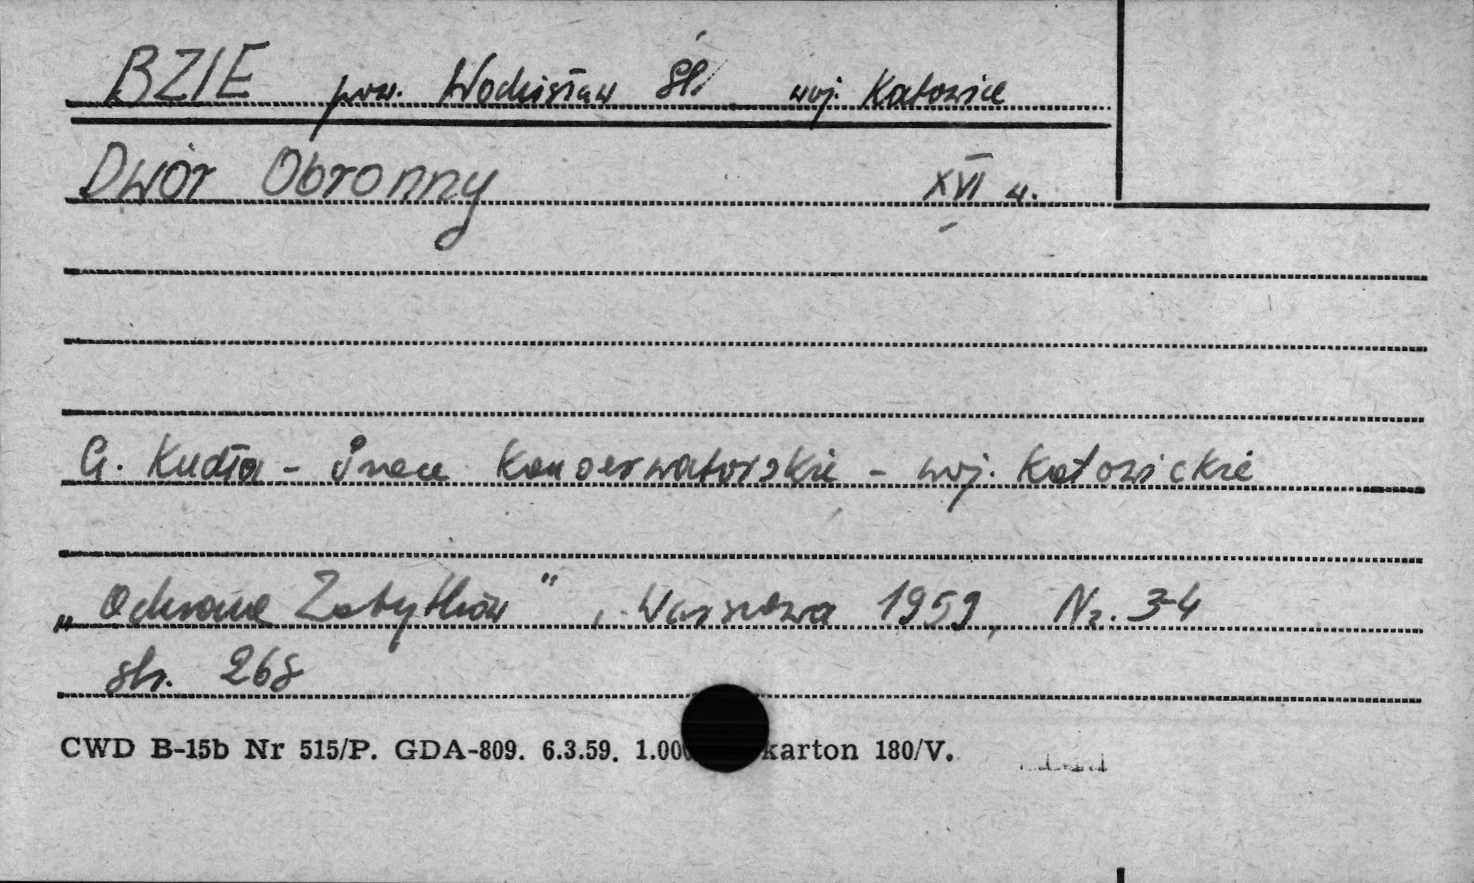 BZIE pow. Wodzisław Śl. woj. Katowice
Dwór Obronny XVI w.
G. Kudła - Prace Konserwatorskie - woj. Katowickie
„Ochrona Zabytków", Warszawa 1959, Nr. 3-4
str. 268
CWD B-15b Nr 515/P. GDA-809. 6.3.59. karton 180/V.